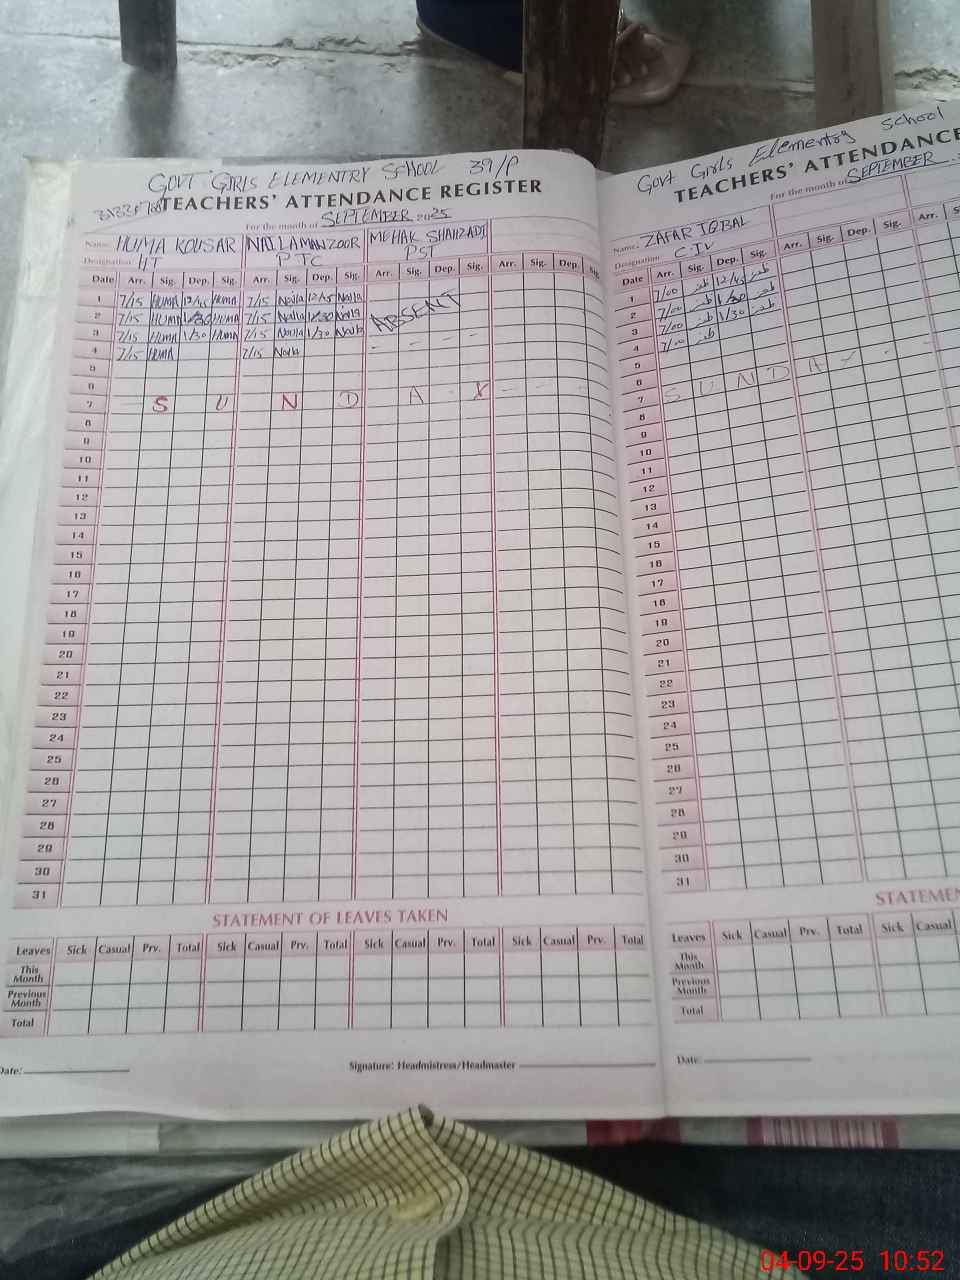 GOVT GIRLS ELEMENTRY SCHOOL 39/P
TEACHERS' ATTENDANCE REGISTER
For the month of SEPTEMBER 2025
Name: HUMA KOUSAR NAILA MANZOOR MEHAK SHAHZADI
Designation HT PTC PST
Date Arr. Sig. Dep. Sig. Arr. Sig. Dep. Sig. Arr. Sig. Dep. Sig. Arr. Sig. Dep. Sig.
1 7/15 HUMA 12/45 HUMA 7/15 Naila 12/45 Naila
2 7/15 HUMA 1/30 HUMA 7/15 Naila 1/30 Naila ABSENT
3 7/15 HUMA 1/30 HUMA 7/15 Naila 1/30 Naila
4 7/15 HUMA 7/15 Naila
5
6
7 S U N D A Y
8
9
10
11
12
13
14
15
16
17
18
19
20
21
22
23
24
25
26
27
28
29
30
31
STATEMENT OF LEAVES TAKEN
Leaves Sick Casual Prv. Total Sick Casual Prv. Total Sick Casual Prv. Total Sick Casual Prv. Total
This Month
Previous Month
Total
Date:
Signature: Headmistress/Headmaster
Govt Girls Elementry School
TEACHERS' ATTENDANCE
For the month of SEPTEMBER
Name. ZAFAR IQBAL
Designation C.IV
Date Arr. Sig. Dep. Sig. Arr. Sig. Dep. Sig. Arr. Sig.
1 7/00 ظفر 12/45 ظفر
2 7/00 ظفر 1/30 ظفر
3 7/00 ظفر 1/30 ظفر
4 7/00 ظفر
5
6
7 S U N D A Y
8
9
10
11
12
13
14
15
16
17
18
19
20
21
22
23
24
25
26
27
28
29
30
31
STATEMEN
Leaves Sick Casual Prv. Total Sick Casual
This Month
Previous Month
Total
Date:
04-09-25 10:52